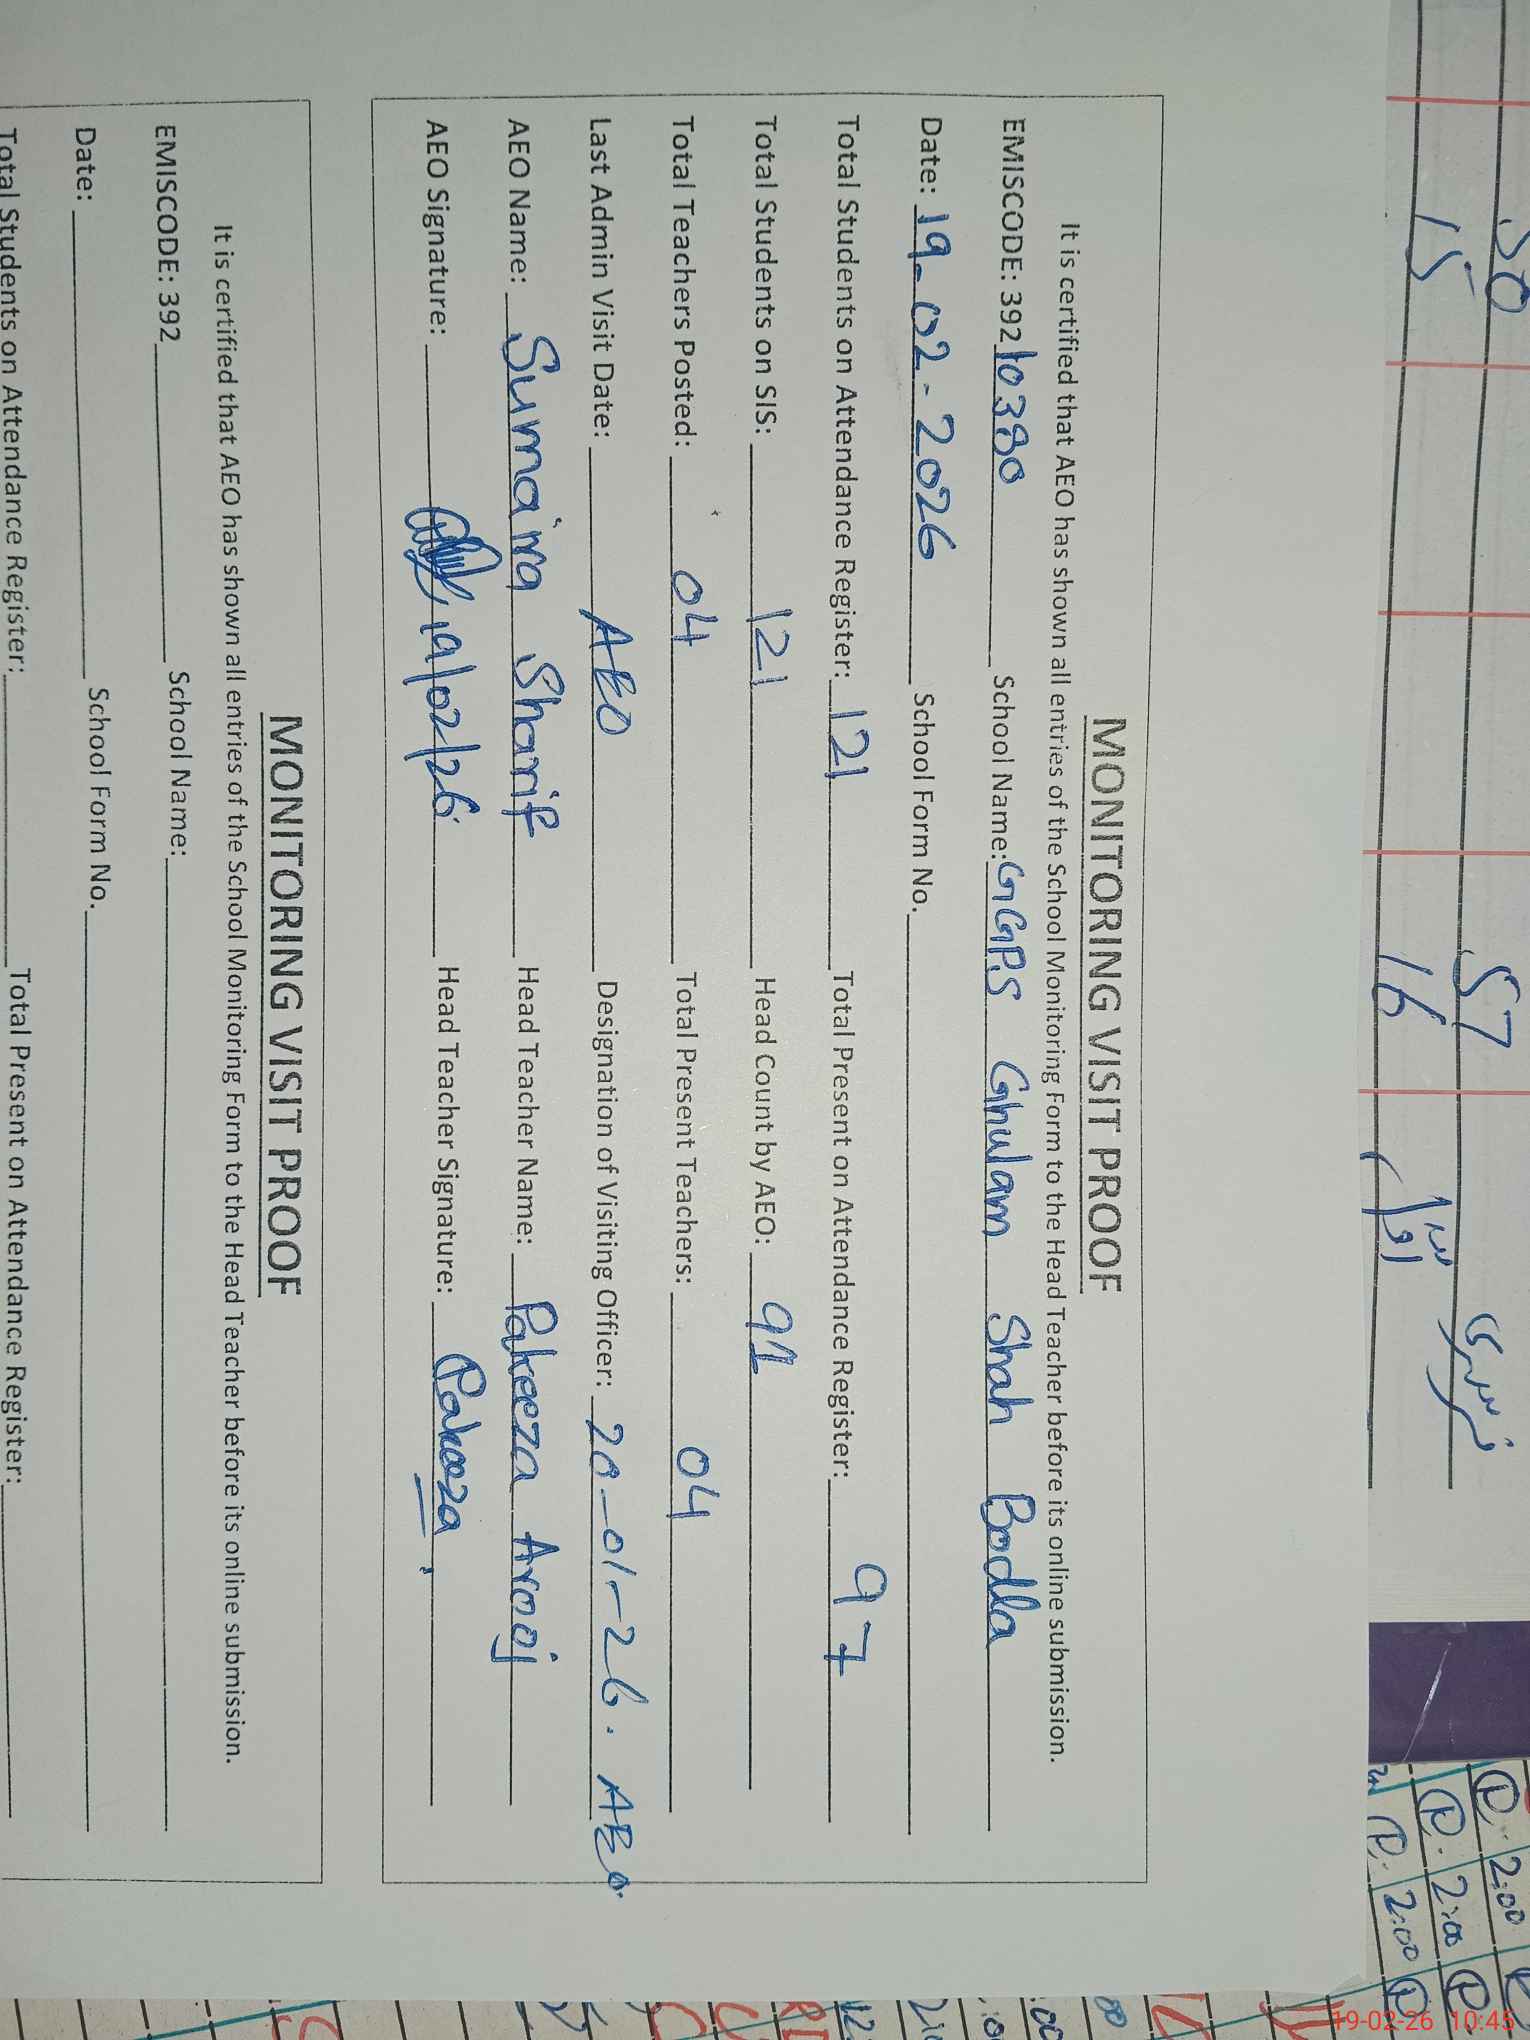 MONITORING VISIT PROOF
It is certified that AEO has shown all entries of the School Monitoring Form to the Head Teacher before its online submission.
EMISCODE: 392 10380 School Name: GGPS Ghulam Shah Bodla
Date: 19-02-2026 School Form No.
Total Students on Attendance Register: 121 Total Present on Attendance Register: 97
Total Students on SIS: 121 Head Count by AEO: 91
Total Teachers Posted: 04 Total Present Teachers: 04
Last Admin Visit Date: AEO Designation of Visiting Officer: 20-01-26. AEO.
AEO Name: Sumaira Sharif Head Teacher Name: Pakeeza Arooj
AEO Signature: 19/02/26 Head Teacher Signature: Pakeeza.
MONITORING VISIT PROOF
It is certified that AEO has shown all entries of the School Monitoring Form to the Head Teacher before its online submission.
EMISCODE: 392 School Name:
Date: School Form No.
Total Students on Attendance Register: Total Present on Attendance Register:
57
15 16
P. 2:00
P. 2:00
P. 2:00 P
19-02-26 10:45